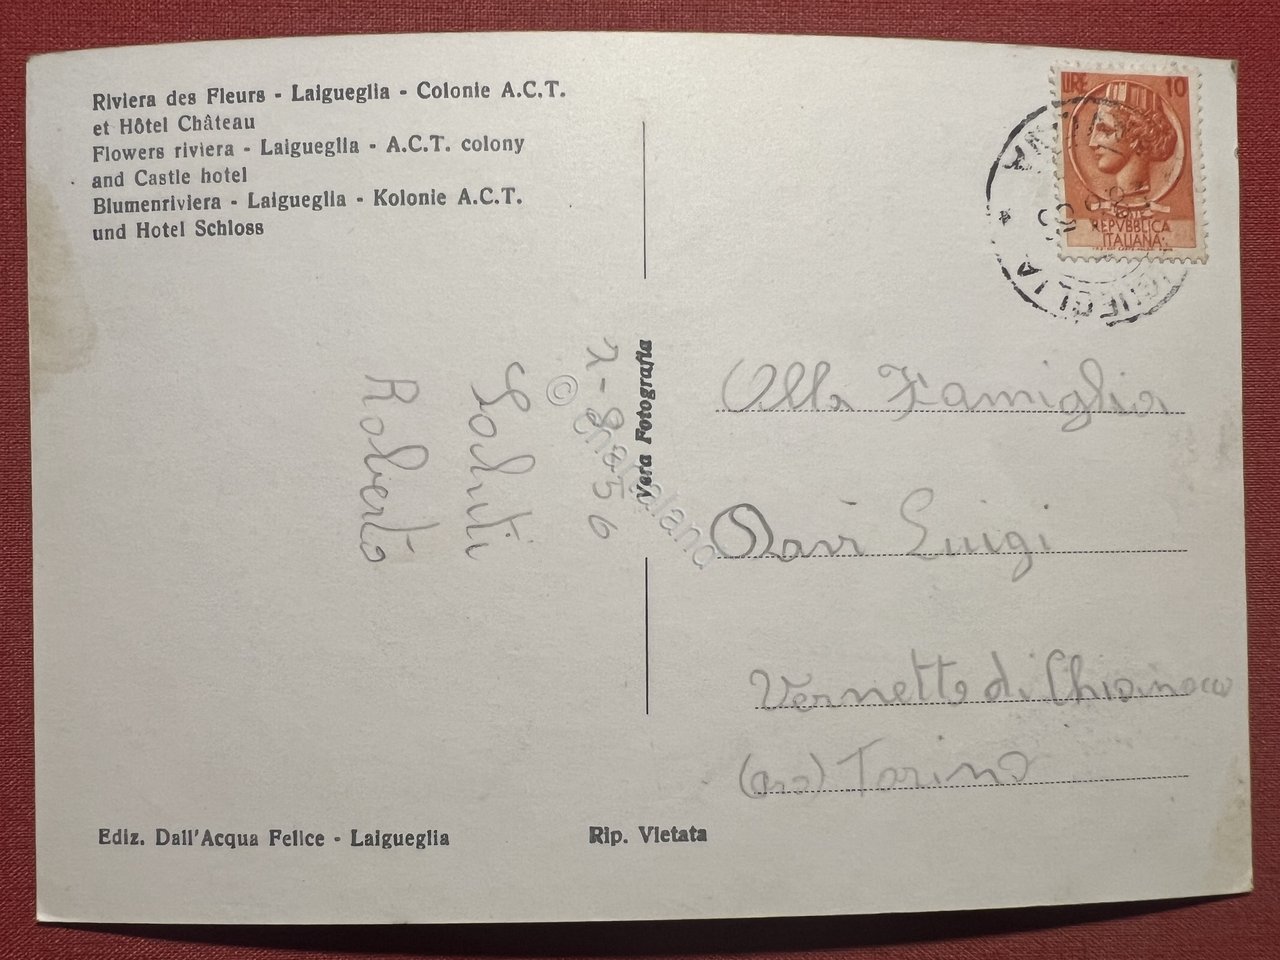 Riviera des Fleurs - Laigueglia - Colonie A.C.T.
et Hôtel Château
Flowers riviera - Laigueglia - A.C.T. colony
and Castle hotel
Blumenriviera - Laigueglia - Kolonie A.C.T.
und Hotel Schloss
LIRE 10
REPVBBLICA
ITALIANA
Vera Fotografia
© cartaland
Saluti
Roberto
Alla Famiglia
Davì Luigi
Vernetto di Chianocco
Torino
Ediz. Dall'Acqua Felice - Laigueglia
Rip. Vietata